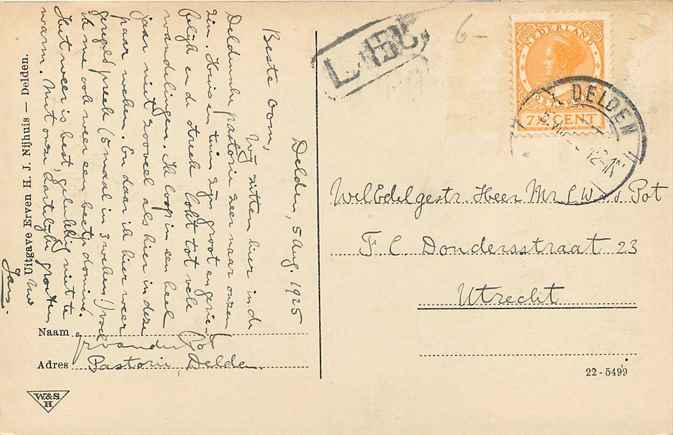 Delden, 5 Aug. 1925
Beste Oom,
Wij zitten hier in de
Deldensche pastorie zeer naar onzen
zin. Huis en tuin zijn groot en
en de streek lokt tot vele
wandelingen. Ik loop in een heel
jaar niet zooveel als hier in deze
paar weken. En daar ik hier weer
(5 maal in 3 weken!) voel
ik me ook weer een beetje dominé.
Het weer is best, gelukkig niet te
warm. Met onze hartelijke groeten
Uw
Jan.
L. 151,
6-
NEDERLAND
7½ CENT
DELDEN
12-1N
WelEdelgestr. Heer Mr. L.W. v.d. Pot
F. C. Dondersstraat 23
Utrecht
Naam
Adres Pastorie Delden.
Uitgave Erven H. J. Nijhuis — Delden.
W&S
H
22-5499